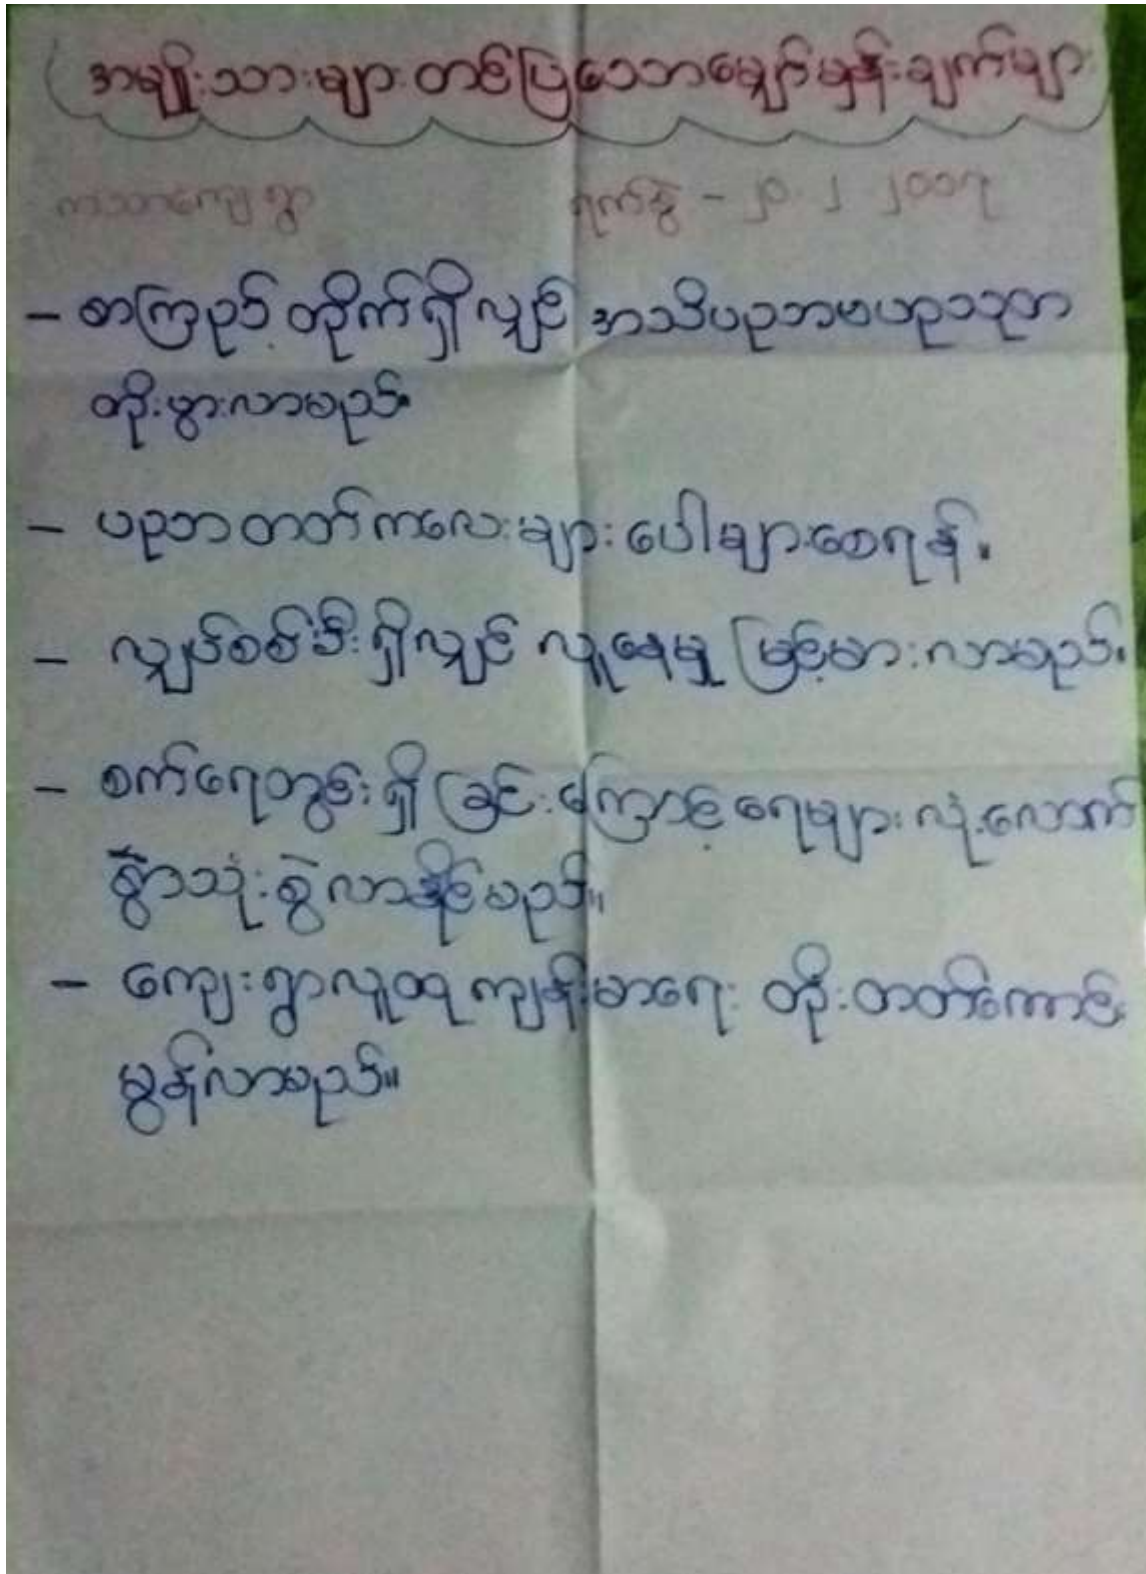 အမျိုးသားများ တင်ပြသောမျှော်မှန်းချက်များ
ကသာကျေးရွာ ရက်စွဲ - ၂၀.၂.၂၀၁၇
- စာကြည့်တိုက်ရှိလျှင် အသိပညာဗဟုသုတ
တိုးပွားလာမည်။
- ပညာတတ်ကလေးများ ပေါများစေရန်။
- လျှပ်စစ်မီးရှိလျှင် လူနေမှု မြင့်မားလာမည်။
- စက်ရေတွင်းရှိခြင်းကြောင့် ရေများလုံလောက်
စွာသုံးစွဲလာနိုင်မည်။
- ကျေးရွာလူထု ကျန်းမာရေး တိုးတတ်ကောင်း
မွန်လာမည်။